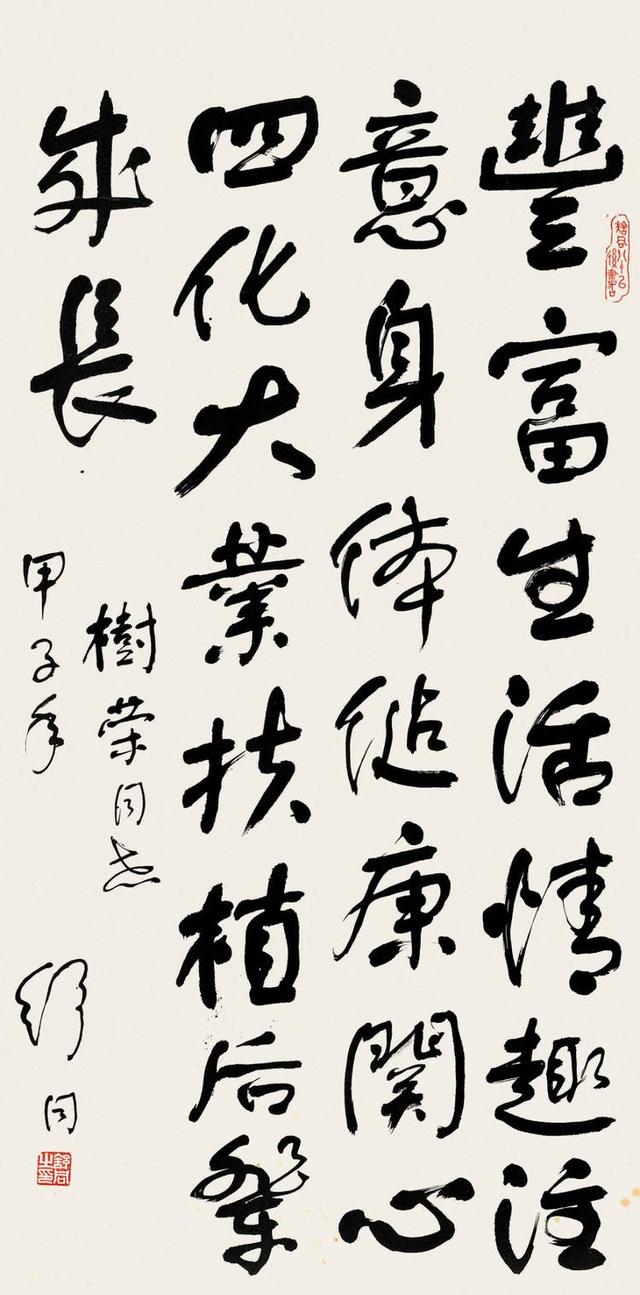 豐富生活情趣注
意身体健康関心
四化大業扶植后輩
成長
樹荣同志
甲子年
舒同
舒同之印